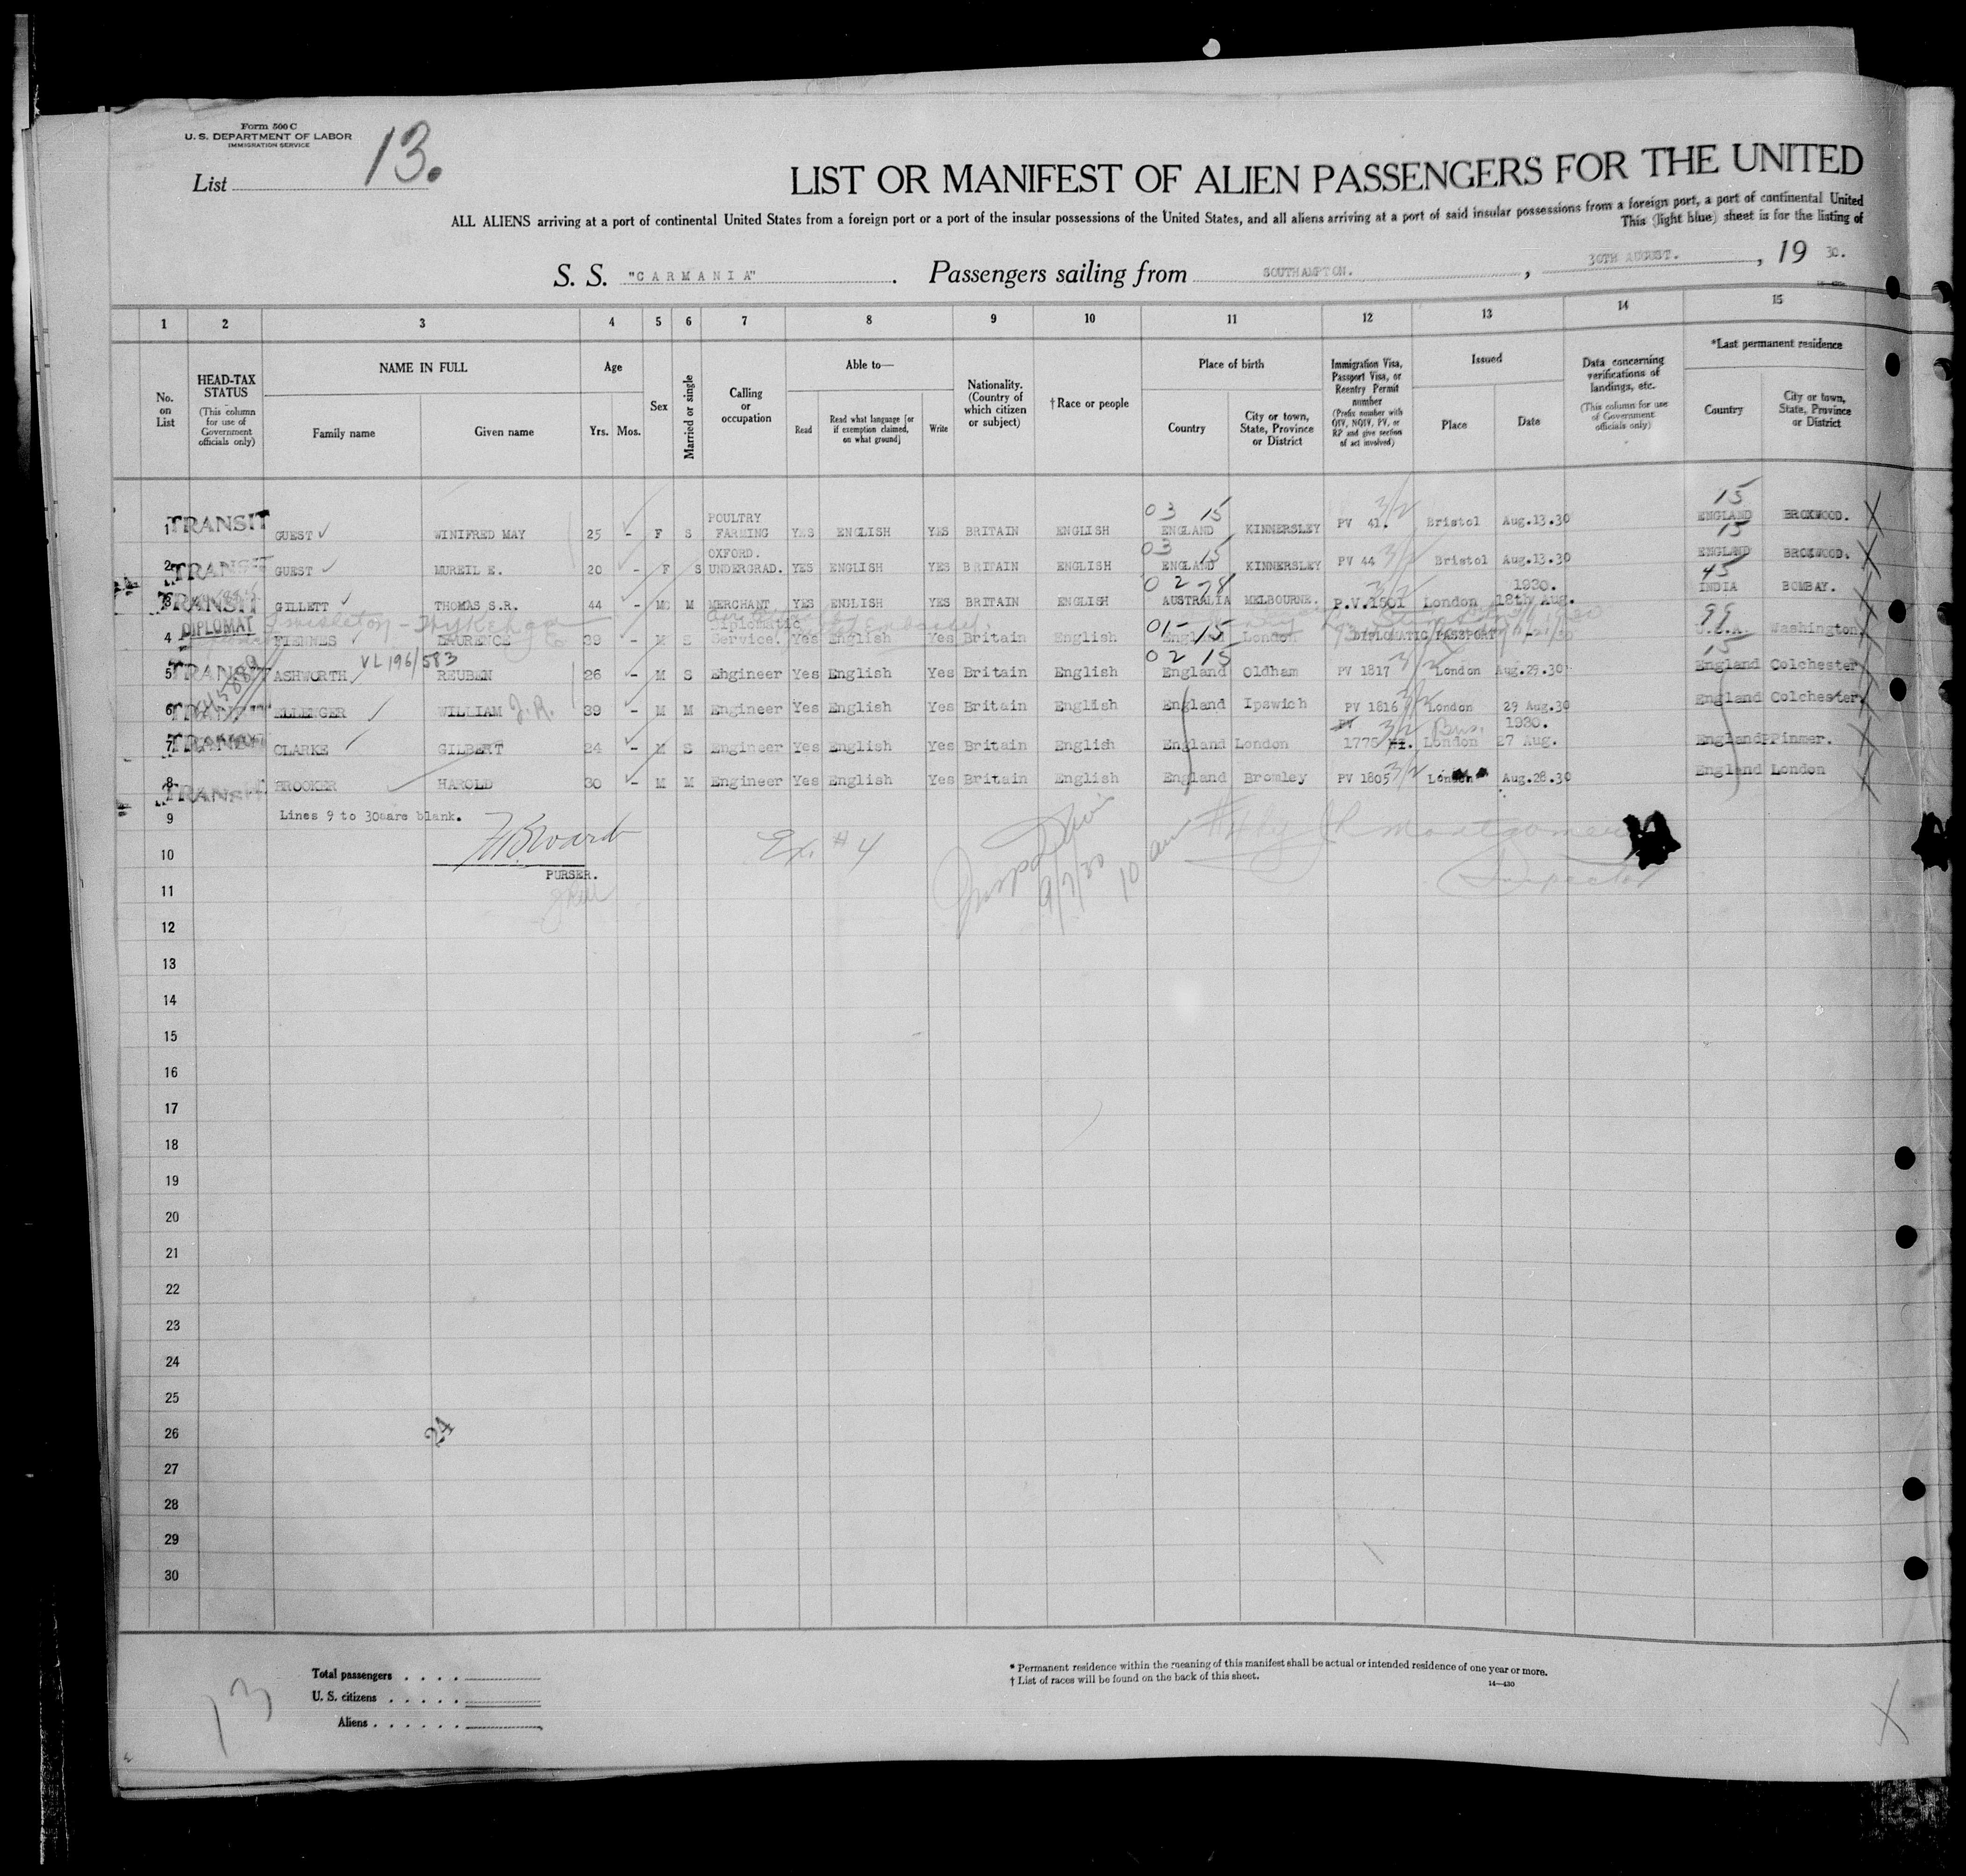 Form 500 C
U. S. DEPARTMENT OF LABOR
IMMIGRATION SERVICE
List 13.
LIST OR MANIFEST OF ALIEN PASSENGERS FOR THE UNITED
ALL ALIENS arriving at a port of continental United States from a foreign port or a port of the insular possessions of the United States, and all aliens arriving at a port of said insular possessions from a foreign port, a port of continental United
This (light blue) sheet is for the listing of
S. S. "CARMANIA". Passengers sailing from SOUTHAMPTON. , 30TH AUGUST. , 19 30.
1 2 3 4 5 6 7 8 9 10 11 12 13 14 15
No. on List
HEAD-TAX STATUS (This column for use of Government officials only)
NAME IN FULL Family name Given name
Age Yrs. Mos.
Sex
Married or single
Calling or occupation
Able to— Read Read what language [or if exemption claimed, on what ground] Write
Nationality. (Country of which citizen or subject)
†Race or people
Place of birth Country City or town, State, Province or District
Immigration Visa, Passport Visa, or Reentry Permit number (Prefix number with QIV, NQIV, PV, or RP and give section of act involved)
Issued Place Date
Data concerning verifications of landings, etc. (This column for use of Government officials only)
*Last permanent residence Country City or town, State, Province or District
03 15 3/2 15
1 TRANSIT GUEST WINIFRED MAY 25 - F S POULTRY FARMING YES ENGLISH YES BRITAIN ENGLISH ENGLAND KINNERSLEY PV 41. Bristol Aug.13.30 ENGLAND BROKWOOD. X
03 15 3/2 15
2 TRANSIT GUEST MUREIL E. 20 - F S OXFORD. UNDERGRAD. YES ENGLISH YES BRITAIN ENGLISH ENGLAND KINNERSLEY PV 44 Bristol Aug.13.30 ENGLAND BROKWOOD. X
02 78 3/2 45
3 TRANSIT GILLETT THOMAS S.R. 44 - M M MERCHANT YES ENGLISH YES BRITAIN ENGLISH AUSTRALIA MELBOURNE. P.V.1501 London 1930. 18th Aug. INDIA BOMBAY. X
Embassy.
01- 15 99
4 DIPLOMAT FIENNES LAURENCE 39 - M S Diplomatic Service. Yes English Yes Britain English England London DIPLOMATIC PASSPORT U.S.A. Washington X
VL 196/583 02 15 3/2 15
5 TRANSIT ASHWORTH REUBEN 26 - M S Engineer Yes English Yes Britain English England Oldham PV 1817 London Aug.29.30 England Colchester X
6 TRANSIT ELLENGER WILLIAM J.R. 39 - M M Engineer Yes English Yes Britain English England Ipswich PV 1816 3/2 London 29 Aug.30 England Colchester X
7 TRANSIT CLARKE GILBERT 24 - M S Engineer Yes English Yes Britain English England London PV 1775 3/2 London 1930. 27 Aug. England Pinner. X
8 TRANSIT BROOKER HAROLD 30 - M M Engineer Yes English Yes Britain English England Bromley PV 1805 3/2 London Aug.28.30 England London X
9 Lines 9 to 30 are blank.
10 Ex. #4 9/7/30 10 am Montgomery
PURSER.
Inspector
11
12
13
14
15
16
17
18
19
20
21
22
23
24
25
26 24
27
28
29
30
Total passengers . . . .
U. S. citizens . . . . .
Aliens . . . . . .
13
* Permanent residence within the meaning of this manifest shall be actual or intended residence of one year or more.
† List of races will be found on the back of this sheet.
14—430
X